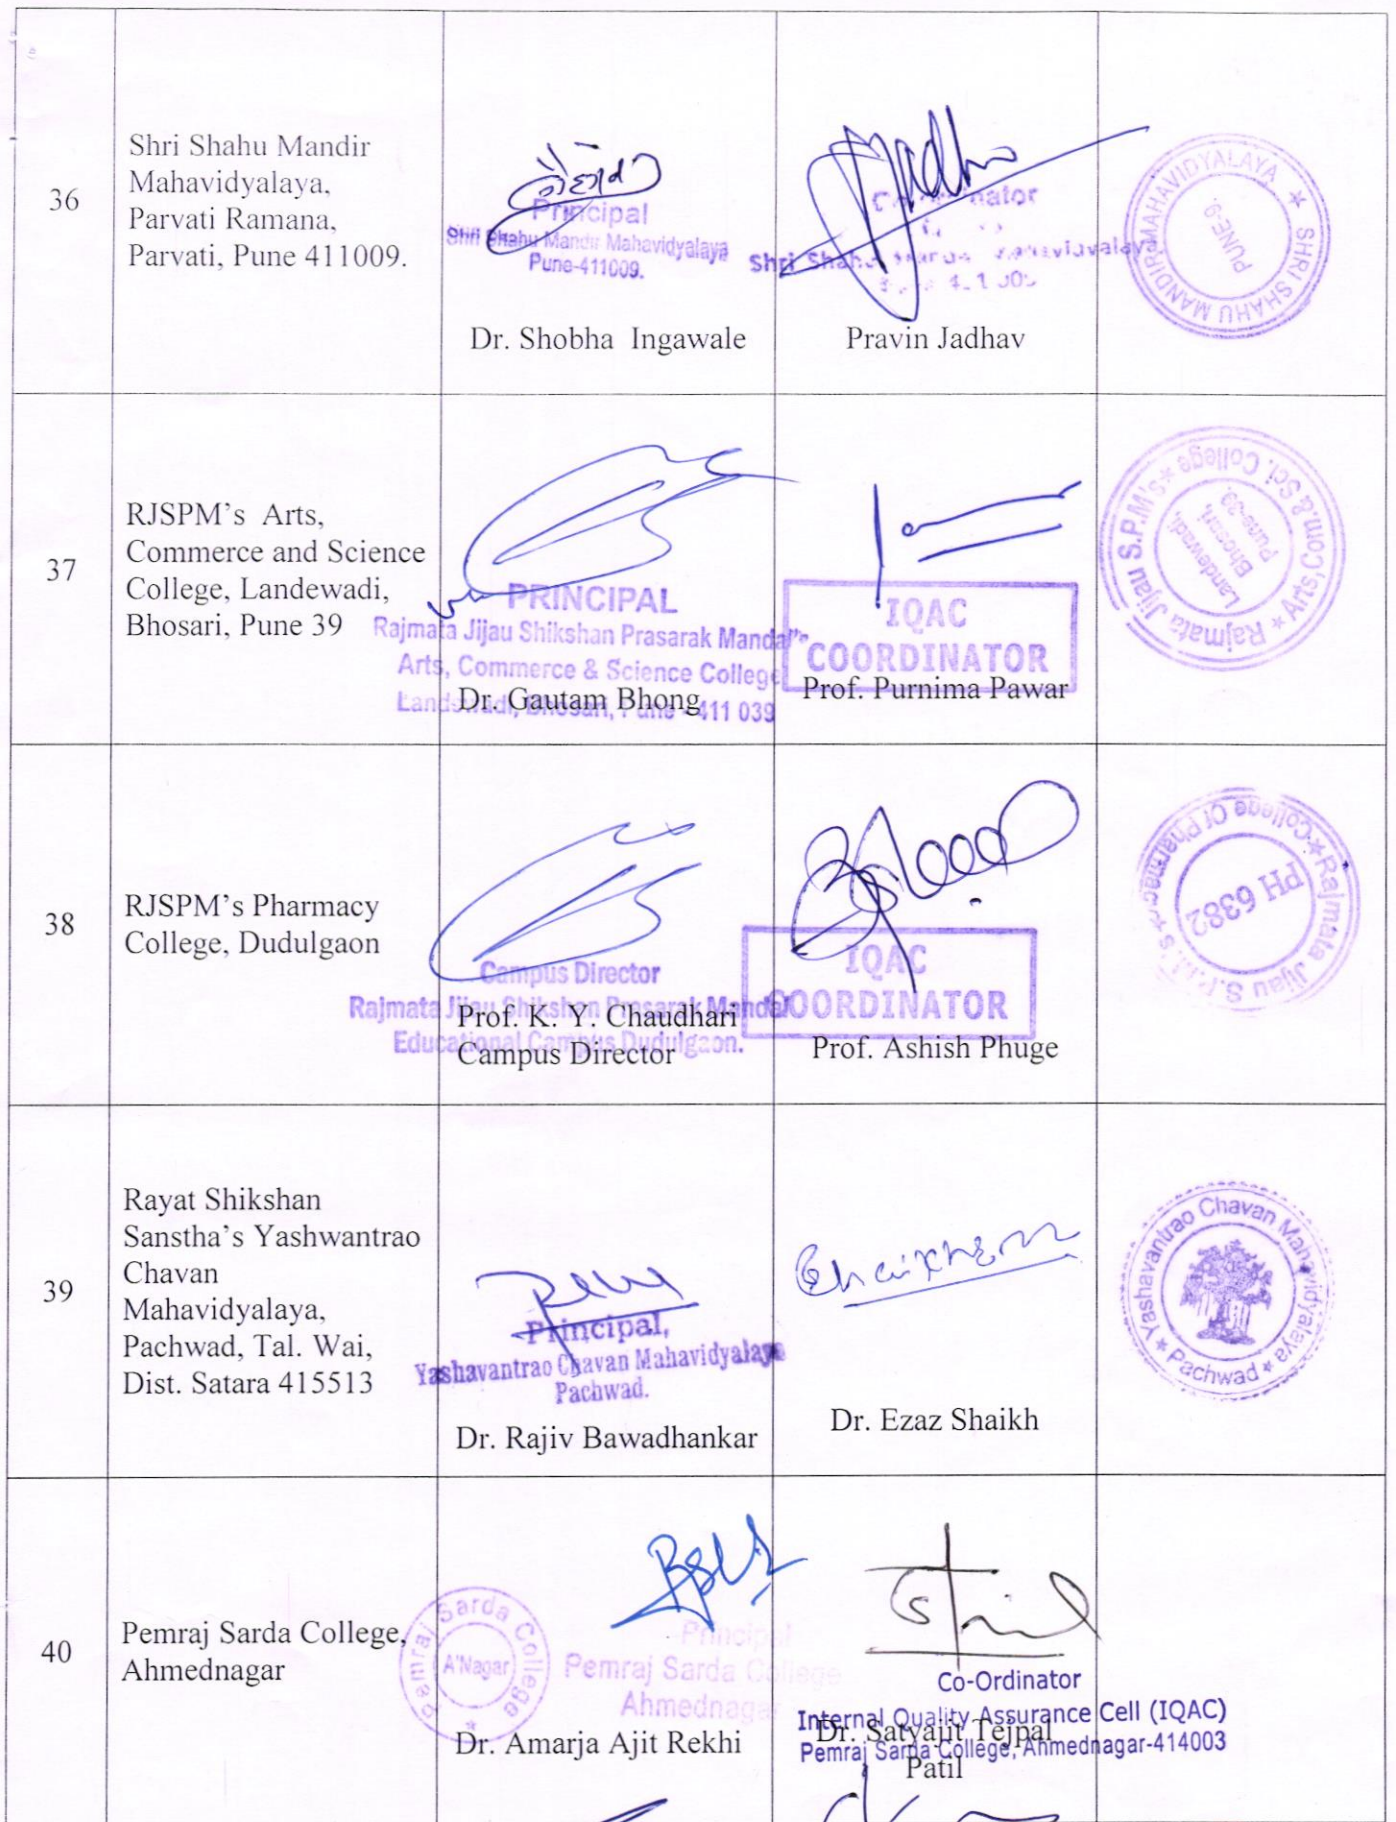 36
Shri Shahu Mandir
Mahavidyalaya,
Parvati Ramana,
Parvati, Pune 411009.
Principal
Shri Shahu Mandir Mahavidyalaya
Pune-411009.
Dr. Shobha Ingawale
Jadhav
Co-ordinator
Shri Shahu Mandir Mahavidyalaya
Pravin Jadhav
SHRI SHAHU MANDIR MAHAVIDYALAYA ★
PUNE-9.
37
RJSPM's Arts,
Commerce and Science
College, Landewadi,
Bhosari, Pune 39
PRINCIPAL
Rajmata Jijau Shikshan Prasarak Mandal's
Arts, Commerce & Science College
Landewadi, Bhosari, Pune - 411 039
Dr. Gautam Bhong
IQAC
COORDINATOR
Prof. Purnima Pawar
★ Rajmata Jijau S.P.M's ★ Arts, Com. & Sci. College
Landewadi,
Bhosari,
Pune-39.
38
RJSPM's Pharmacy
College, Dudulgaon
Campus Director
Rajmata Jijau Shikshan Prasarak Mandal
Educational Campus Dudulgaon.
Prof. K. Y. Chaudhari
Campus Director
IQAC
COORDINATOR
Prof. Ashish Phuge
Rajmata Jijau S.P.M.'s ★ College Of Pharmacy ★
PH 6382
39
Rayat Shikshan
Sanstha's Yashwantrao
Chavan
Mahavidyalaya,
Pachwad, Tal. Wai,
Dist. Satara 415513
Principal,
Yashavantrao Chavan Mahavidyalaya
Pachwad.
Dr. Rajiv Bawadhankar
Dr. Ezaz Shaikh
Yashavantrao Chavan Mahavidyalaya
★ Pachwad ★
40
Pemraj Sarda College,
Ahmednagar
Pemraj Sarda College
A'Nagar
★
Principal
Pemraj Sarda College
Ahmednagar
Dr. Amarja Ajit Rekhi
Co-Ordinator
Internal Quality Assurance Cell (IQAC)
Pemraj Sarda College, Ahmednagar-414003
Dr. Satyajit Tejpal
Patil